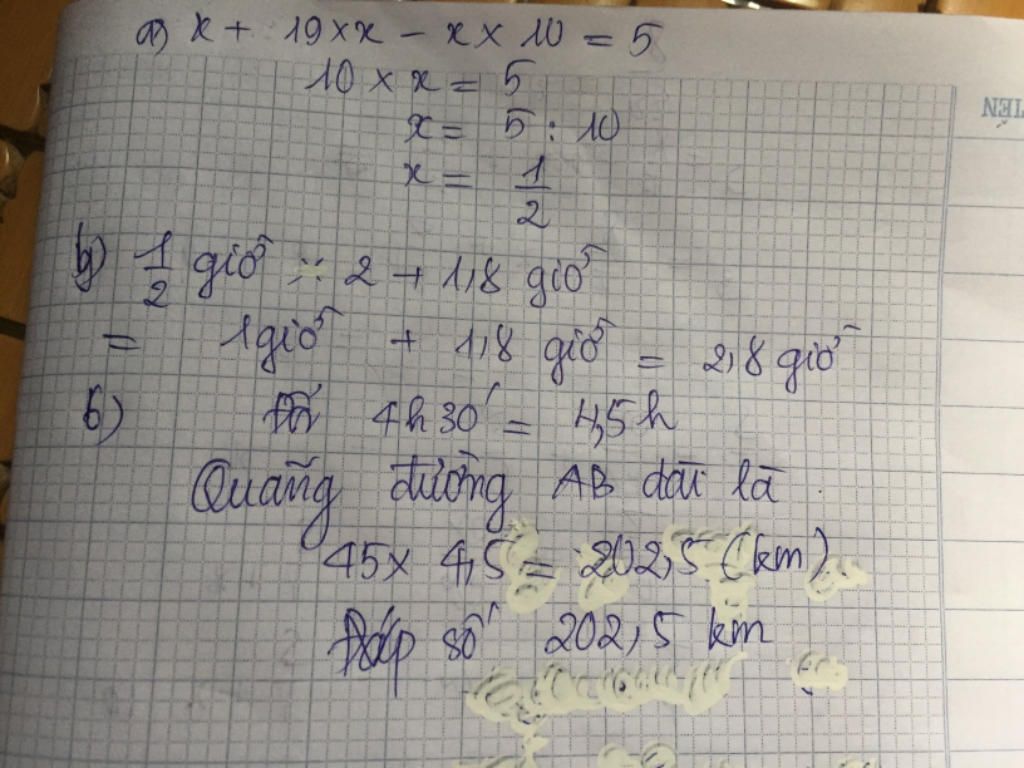 a) x + 19 × x - x × 10 = 5
10 × x = 5
x = 5 : 10
x = 1/2
b) 1/2 giờ × 2 + 1,8 giờ
= 1 giờ + 1,8 giờ = 2,8 giờ
6) Đổi 4h30' = 4,5h
Quãng đường AB dài là
45 × 4,5 = 202,5 (km)
Đáp số 202,5 km